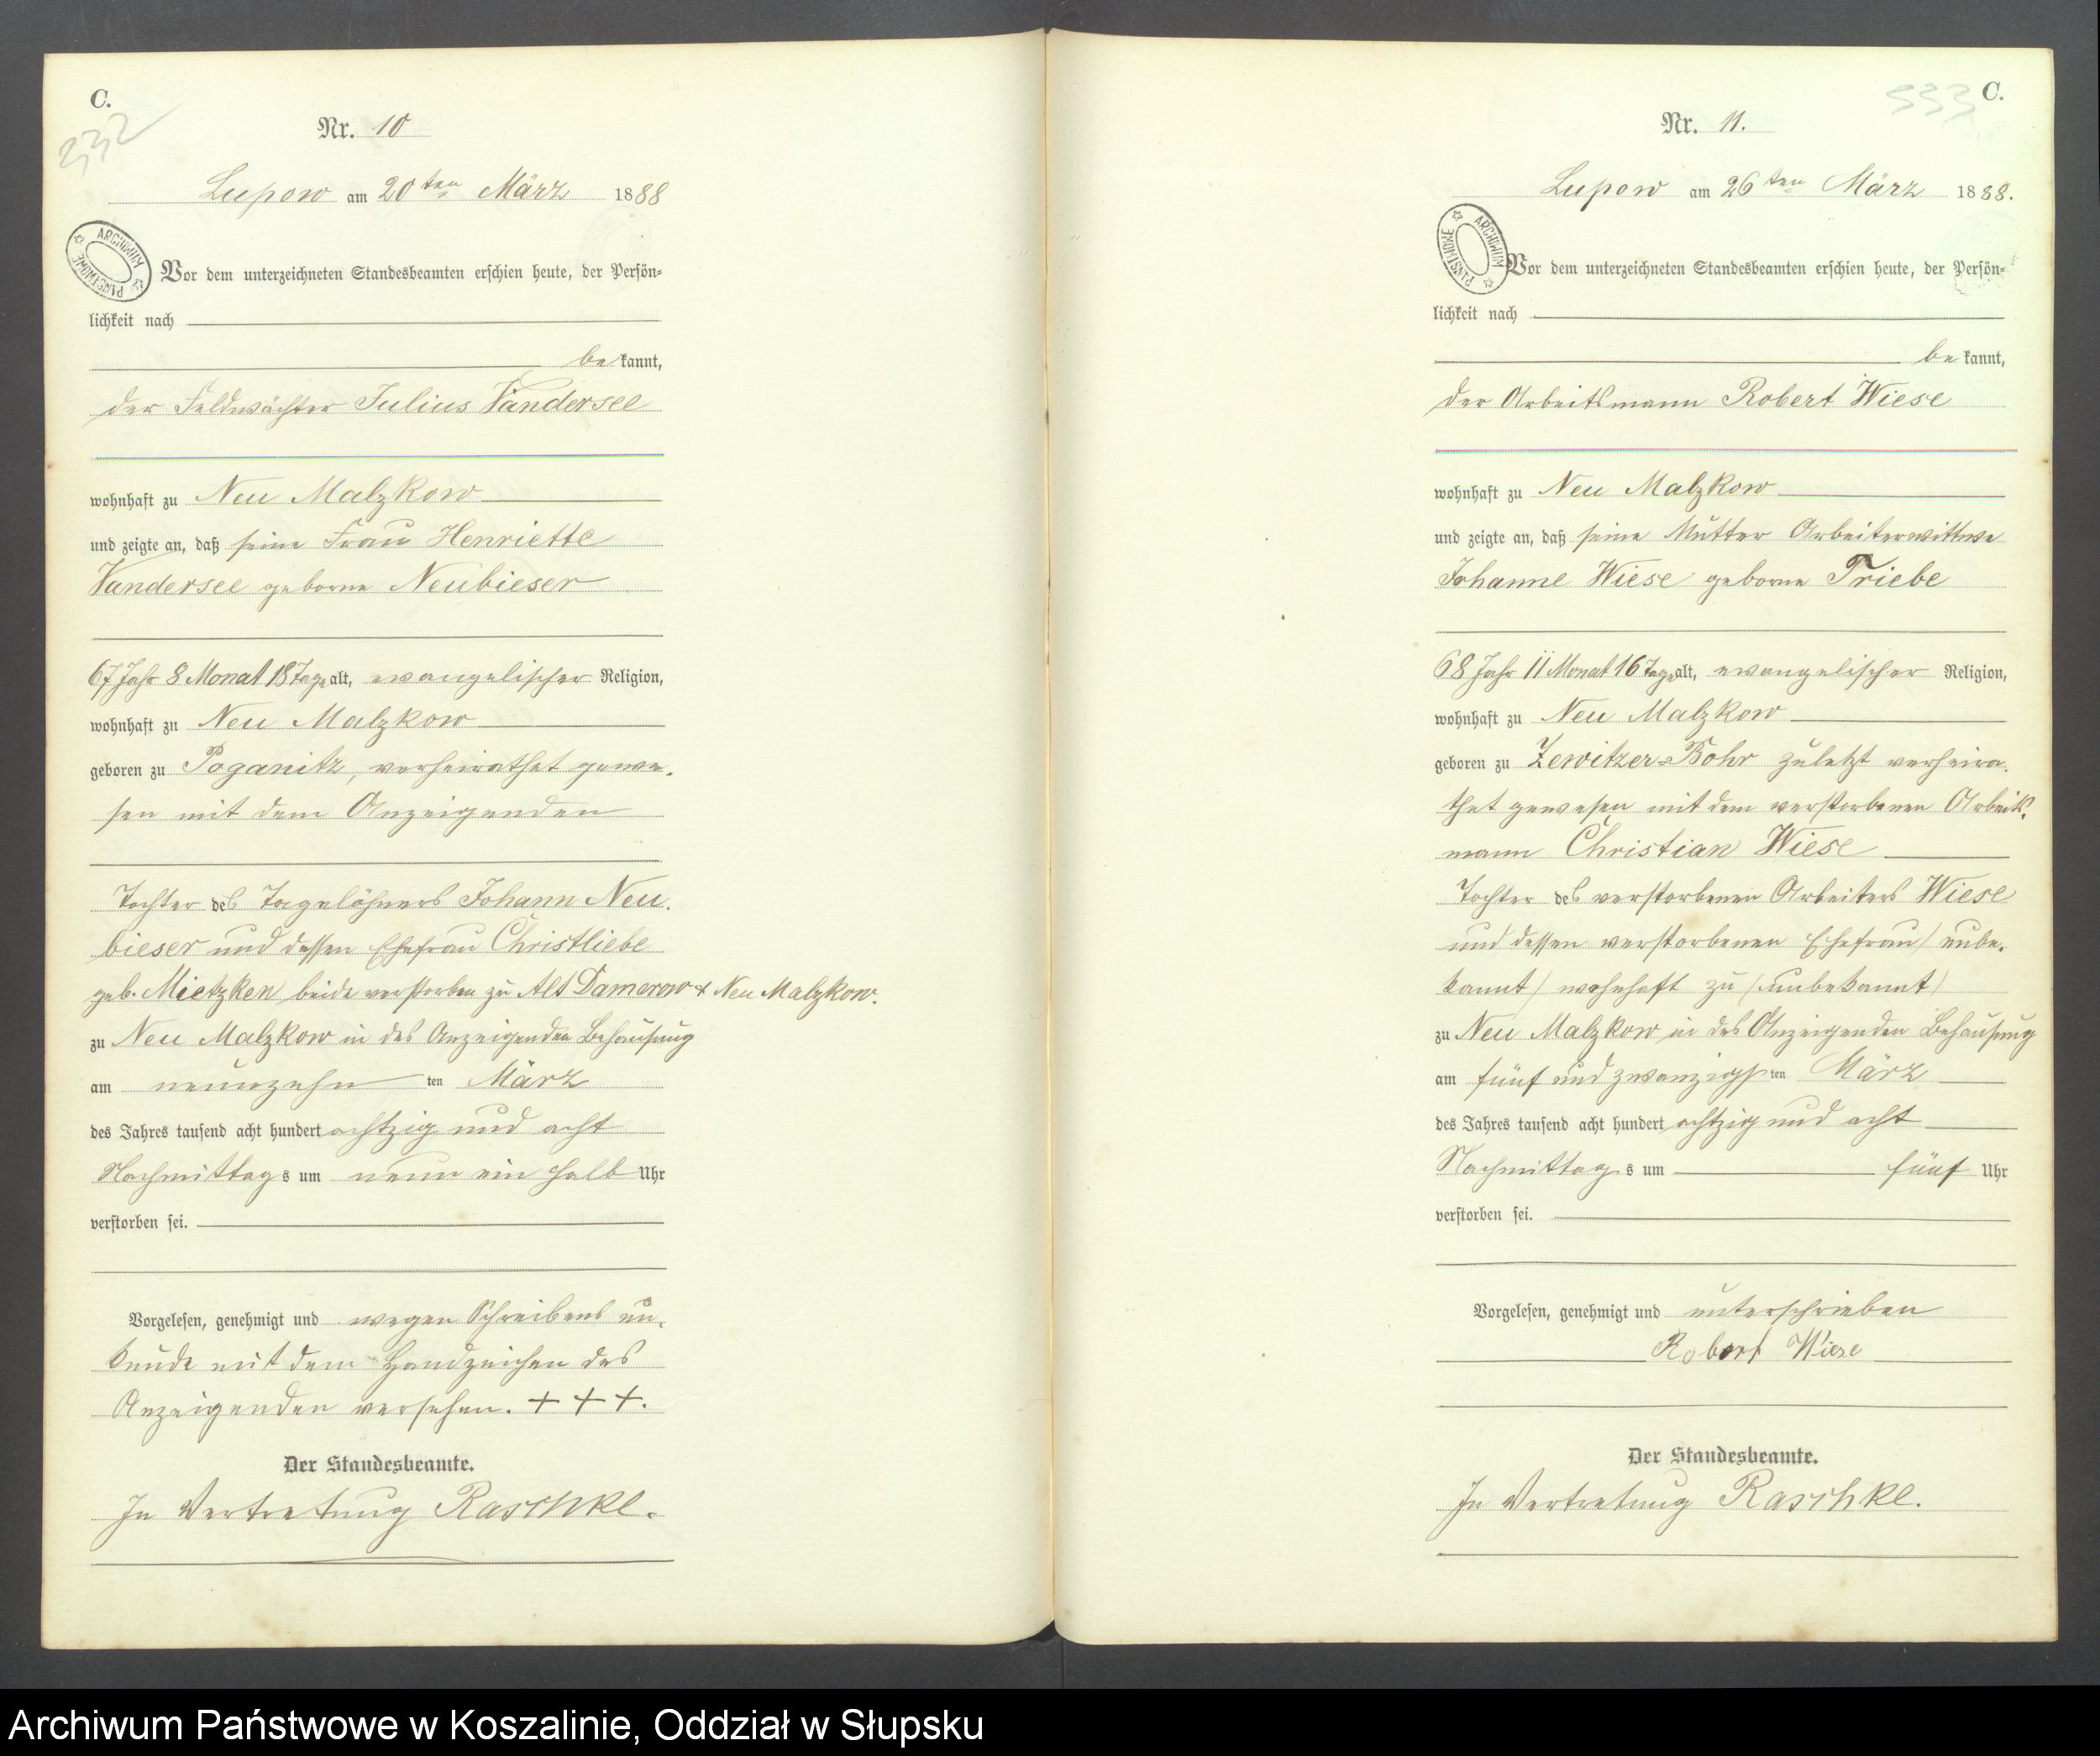 C.
332
Nr. 10
Lupow am 20ten März 1888
ARCHIWUM PAŃSTWOWE
Vor dem unterzeichneten Standesbeamten erschien heute, der Persön-
lichkeit nach
bekannt,
der Feldwächter Julius Vandersee
wohnhaft zu Neu Malzkow
und zeigte an, daß seine Frau Henriette
Vandersee geborne Neubieser
67 Jahr 8 Monat 18 Tage alt, evangelischer Religion,
wohnhaft zu Neu Malzkow
geboren zu Poganitz, verheirathet gewe-
sen mit dem Anzeigenden
Tochter des Tagelöhners Johann Neu-
bieser und dessen Ehefrau Christliebe
geb. Mietzken beide verstorben zu Alt Damerow & Neu Malzkow.
zu Neu Malzkow in des Anzeigenden Behausung
am neunzehn ten März
des Jahres tausend acht hundert achtzig und acht
Nachmittags um neun ein halb Uhr
verstorben sei.
Vorgelesen, genehmigt und wegen Schreibens un-
kunde mit dem Handzeichen des
Anzeigenden versehen. + + +.
Der Standesbeamte.
In Vertretung Raschke.
C.
333
Nr. 11.
Lupow am 26ten März 1888.
ARCHIWUM PAŃSTWOWE
Vor dem unterzeichneten Standesbeamten erschien heute, der Persön-
lichkeit nach
bekannt,
der Arbeitsmann Robert Wiese
wohnhaft zu Neu Malzkow
und zeigte an, daß seine Mutter Arbeiterwittwe
Johanne Wiese geborne Triebe
68 Jahr 11 Monat 16 Tage alt, evangelischer Religion,
wohnhaft zu Neu Malzkow
geboren zu Zewitzer-Bohr zuletzt verheira-
thet gewesen mit dem verstorbenen Arbeits-
mann Christian Wiese
Tochter des verstorbenen Arbeiters Wiese
und dessen verstorbenen Ehefrau / unbe-
kannt / wohnhaft zu / unbekannt /
zu Neu Malzkow in des Anzeigenden Behausung
am fünf und zwanzigsten März
des Jahres tausend acht hundert achtzig und acht
Nachmittags um fünf Uhr
verstorben sei.
Vorgelesen, genehmigt und unterschrieben
Robert Wiese
Der Standesbeamte.
In Vertretung Raschke.
Archiwum Państwowe w Koszalinie, Oddział w Słupsku